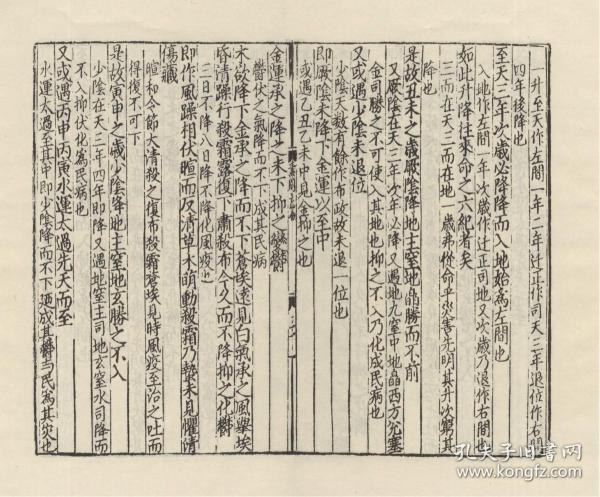 一升至天作左間一年二年迁正作司天三年退位作右間
四年後降也
至天三年次歲必降降而入地始為左間也
入地作左間一年次歲作迁正司地又次歲乃退作右間也
如此升降往來命之六紀者矣
三而在天三而在地一歲弗從命乎災害先明其升次窮其
降也
是故丑未之歲厥陰降地主窒地晶勝而不前
又厥陰在天三年次年必降又遇地九窒中地晶西方兊塞
金司勝之不可使入其地也抑之不入乃化成民病也
又或遇少陰未退位
少陰天数有餘作布政故未退一位也
即厥陰未降下金運以至中
或遇乙丑乙未中見金抑之也
金運承之降之未下抑之變欝
欝伏之氣降而不下成其民病
木欲降下金承之降而不下蒼埃遠見白氣承之風舉埃
昏清躁行殺霜露復下肅殺布令久而不降抑之化欝
三日不降八日降不降化風疫也
即作風躁相伏暄而反清草木萌動殺霜乃下蟄未見懼清
傷藏
暄和令節大清殺之復布殺霜蒼埃見時風疫至治之吐而
得復不可下
是故寅申之歲少陰降地主窒地玄勝之不入
少陰在天三年四年即降又遇地窒主司地玄窒水司降而
不入抑伏化為民病也
又或遇丙申丙寅水運太過先天而至
水運太過至其中即少陰降而不下迺成其欝与民為其災也
孔夫子旧书网
www.kongfz.com